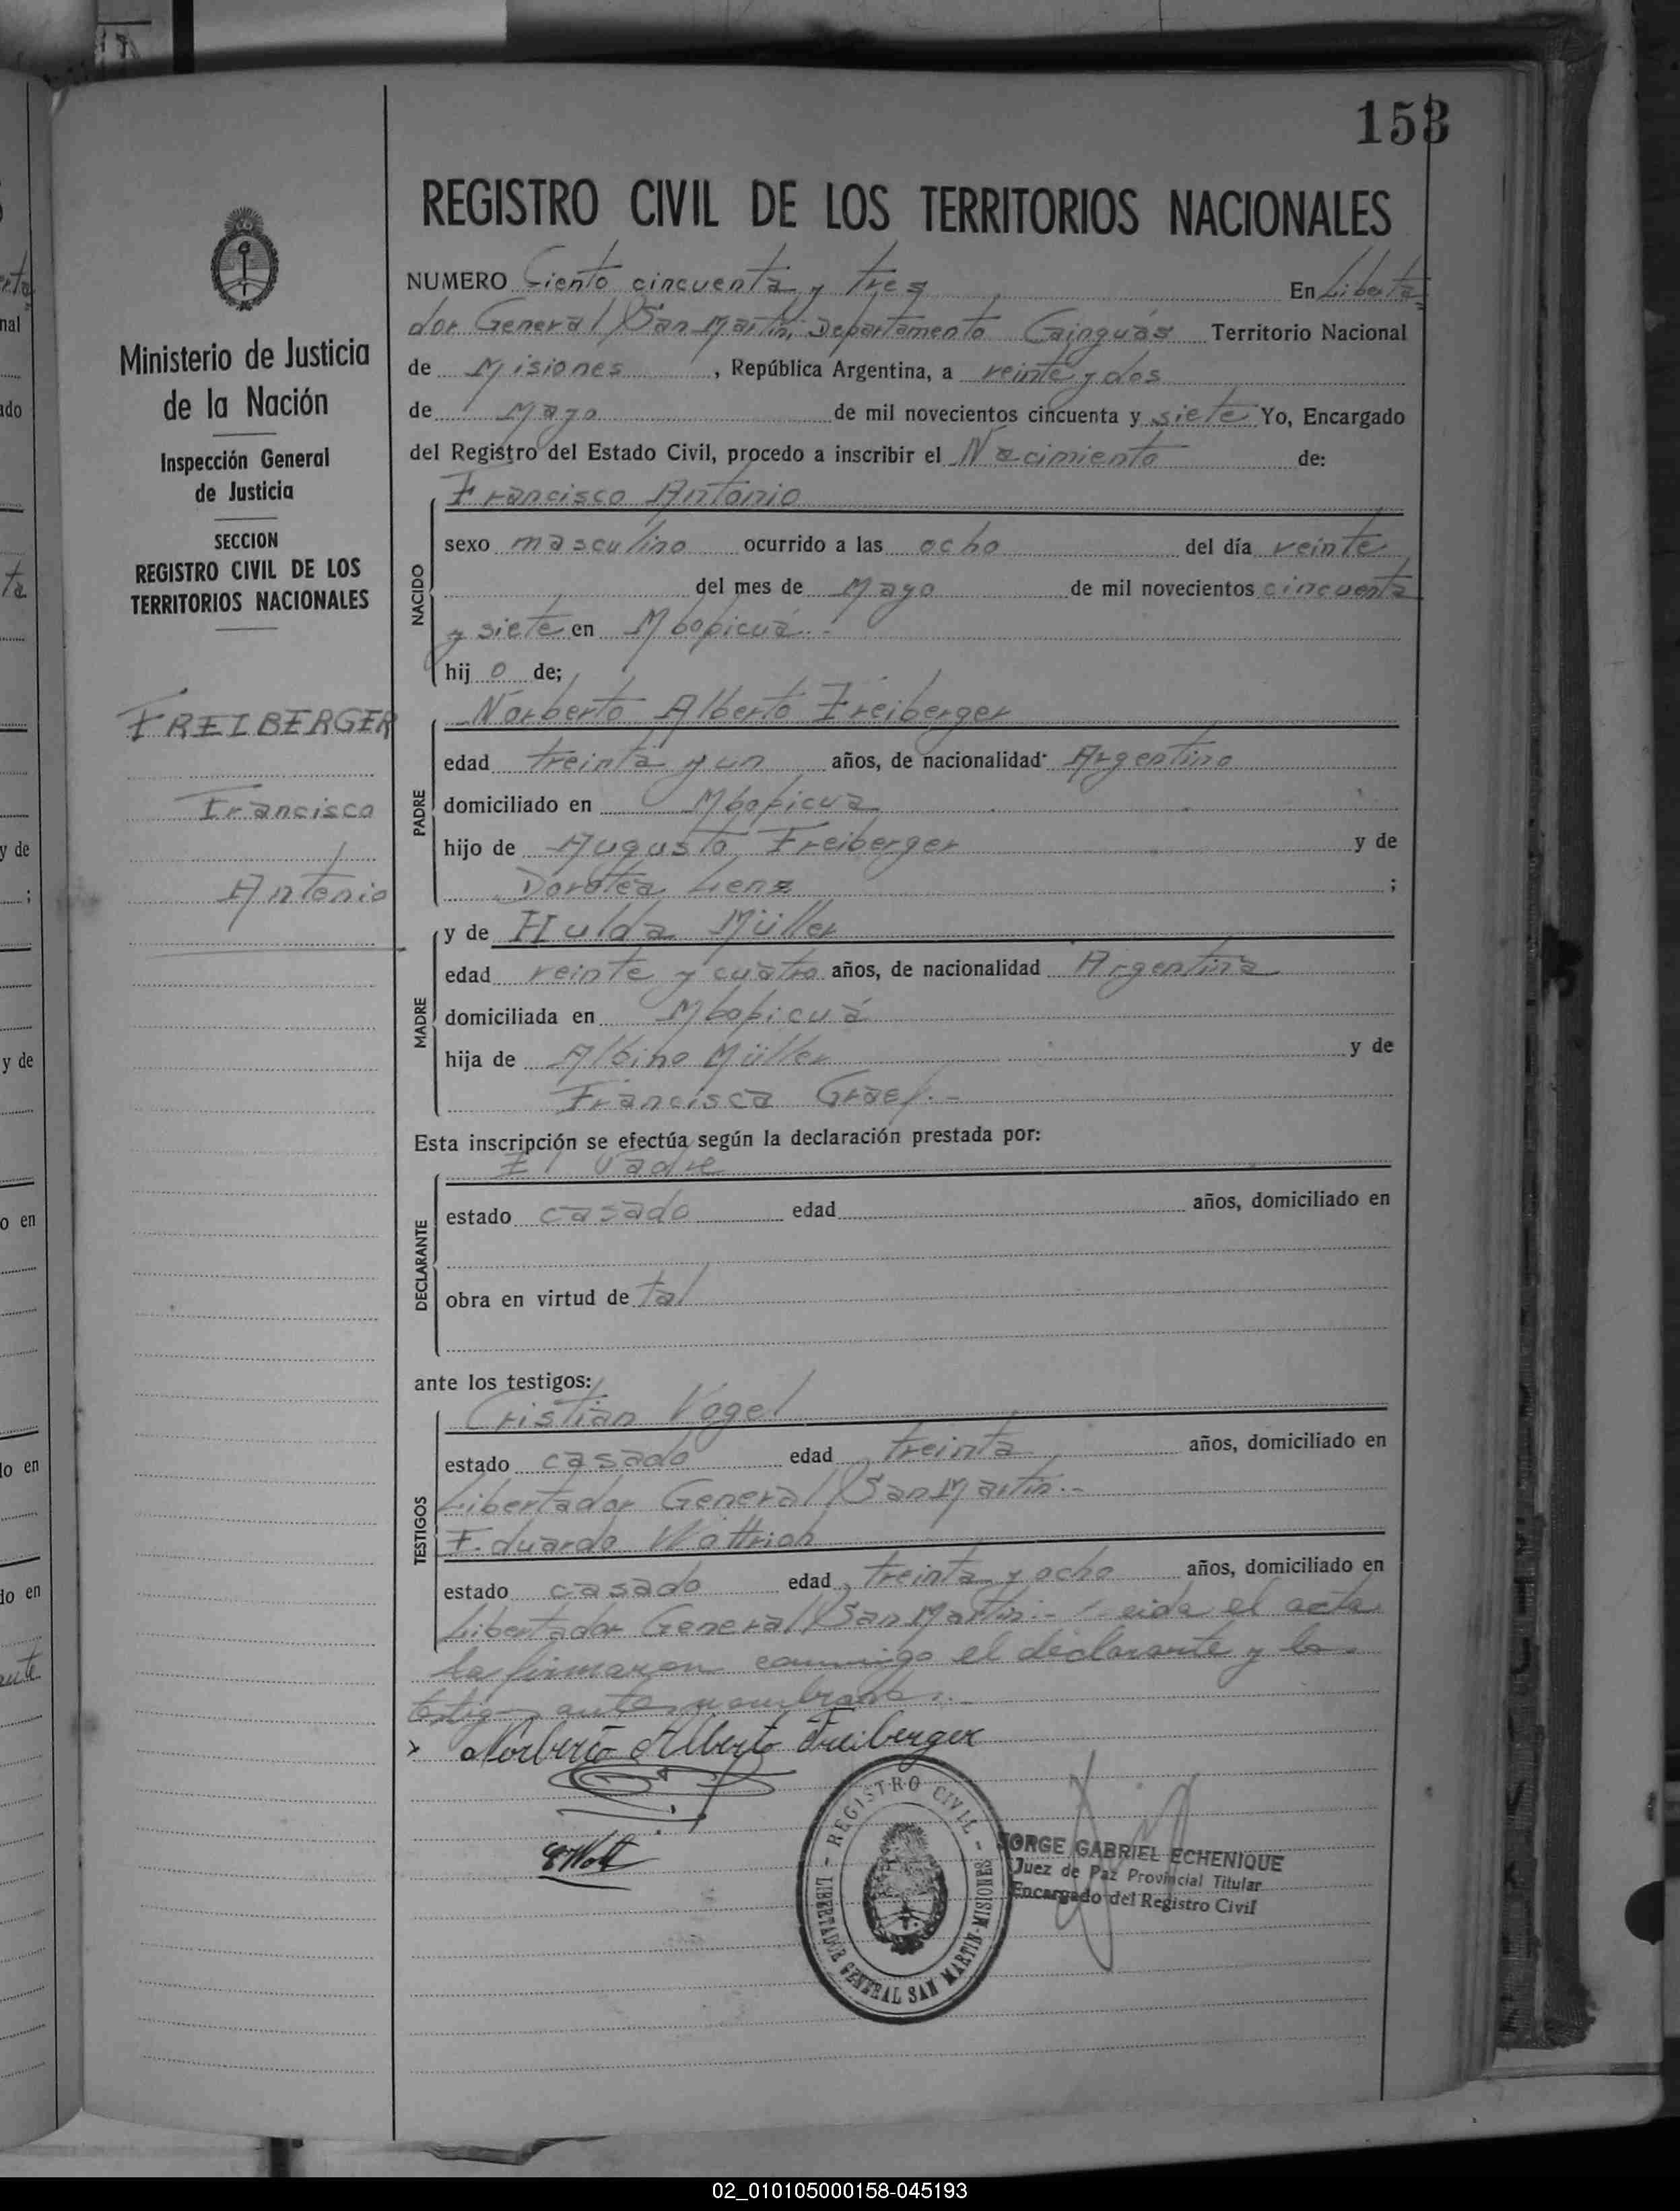 153
REGISTRO CIVIL DE LOS TERRITORIOS NACIONALES
Ministerio de Justicia
de la Nación
Inspección General
de Justicia
SECCION
REGISTRO CIVIL DE LOS
TERRITORIOS NACIONALES
FREIBERGER
Francisco
Antonio
NUMERO Ciento cincuenta y tres En Liberta=
dor General San Martin, Departamento Cainguás Territorio Nacional
de Misiones, República Argentina, a veinte y dos
de Mayo de mil novecientos cincuenta y siete Yo, Encargado
del Registro del Estado Civil, procedo a inscribir el Nacimiento de:
NACIDO
Francisco Antonio
sexo masculino ocurrido a las ocho del día veinte
del mes de Mayo de mil novecientos cincuenta
y siete en Mbopicuá.-
hij o de;
PADRE
Norberto Alberto Freiberger
edad treinta y un años, de nacionalidad Argentino
domiciliado en Mbopicua
hijo de Augusto Freiberger y de
Dorotea Lenz ;
MADRE
y de Hulda Müller
edad veinte y cuatro años, de nacionalidad Argentina
domiciliada en Mbopicuá
hija de Albino Müller y de
Francisca Graef.-
Esta inscripción se efectúa según la declaración prestada por:
DECLARANTE
El Padre
estado casado edad años, domiciliado en
obra en virtud de tal
ante los testigos:
TESTIGOS
Cristian Vogel
estado casado edad treinta años, domiciliado en
Libertador General San Martin.-
Eduardo Wottrich
estado casado edad treinta y ocho años, domiciliado en
Libertador General San Martin.- Leida el acta
la firmaron conmigo el declarante y los
testigos antes nombrados.-
Norberto Alberto Freiberger
EWott
REGISTRO CIVIL
LIBERTADOR GENERAL SAN MARTIN-MISIONES
JORGE GABRIEL ECHENIQUE
Juez de Paz Provincial Titular
Encargado del Registro Civil
nal
ado
y de
;
y de
o en
lo en
do en
02_010105000158-045193